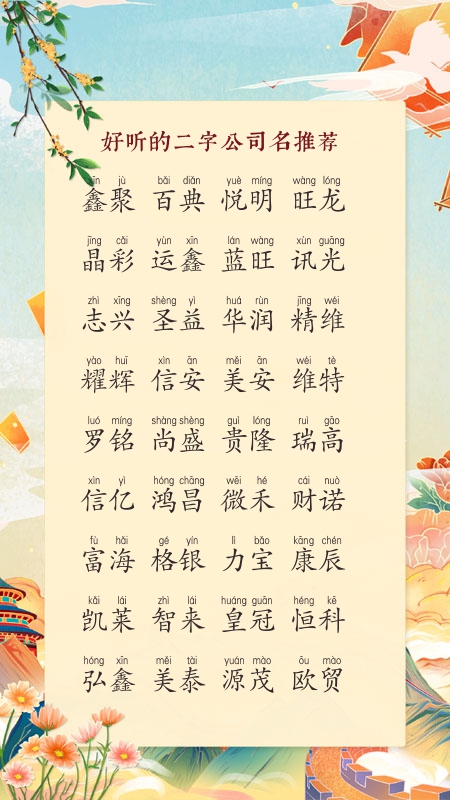 好听的二字公司名推荐
xīn jù bǎi diǎn yuè míng wàng lóng
鑫聚 百典 悦明 旺龙
jīng cǎi yùn xīn lán wàng xùn guāng
晶彩 运鑫 蓝旺 讯光
zhì xīng shèng yì huá rùn jīng wéi
志兴 圣益 华润 精维
yào huī xìn ān měi ān wéi tè
耀辉 信安 美安 维特
luó míng shàng shèng guì lóng ruì gāo
罗铭 尚盛 贵隆 瑞高
xìn yì hóng chāng wēi hé cái nuò
信亿 鸿昌 微禾 财诺
fù hǎi gé yín lì bǎo kāng chén
富海 格银 力宝 康辰
kǎi lái zhì lái huáng guān héng kē
凯莱 智来 皇冠 恒科
hóng xīn měi tài yuán mào ōu mào
弘鑫 美泰 源茂 欧贸